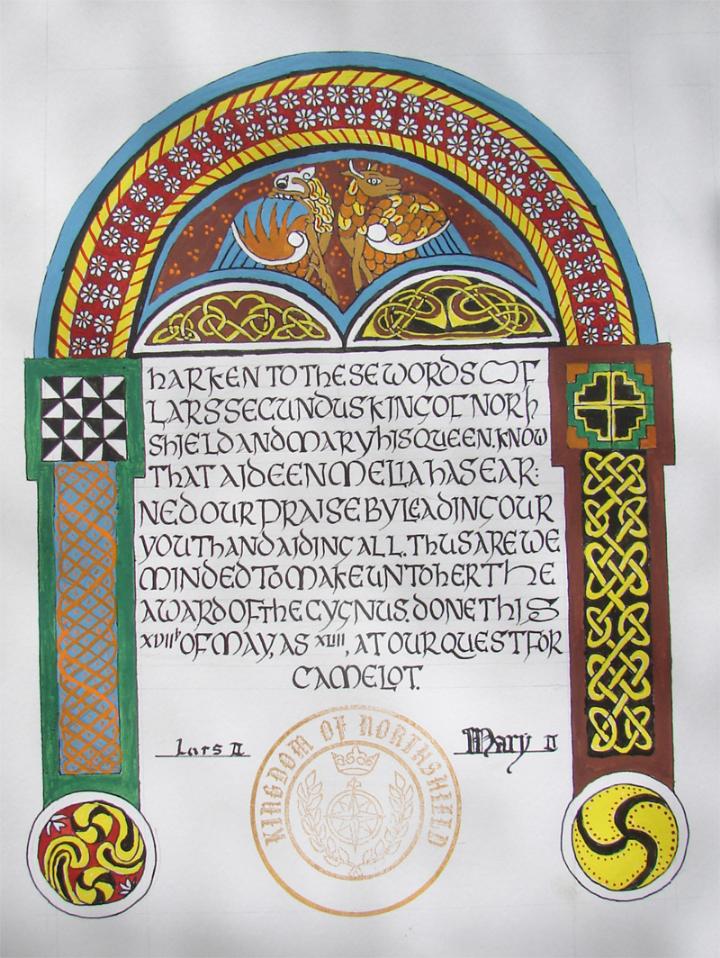 HARKEN TO THESE WORDS OF
LARS SECUNDUS KING OF NORH
SHIELD AND MARY HIS QUEEN. KNOW
THAT AIDEEN MELIA HAS EAR:
NED OUR PRAISE BY LEADING OUR
YOUTH AND AIDING ALL. THUS ARE WE
MINDED TO MAKE UNTO HER THE
AWARD OF THE CYGNUS. DONE THIS
XVIIth OF MAY, AS XLIII, AT OUR QUEST FOR
CAMELOT.
Lars II Mary II
KINGDOM OF NORTHSHIELD